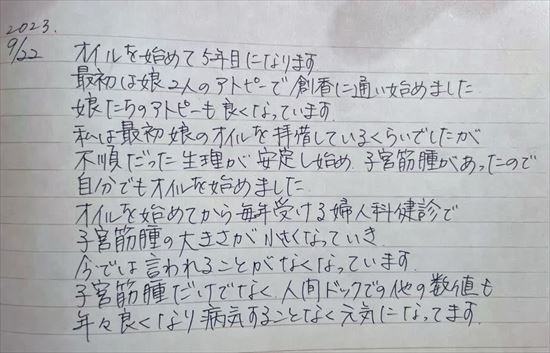 2023.
9/22
オイルを始めて5年目になります
最初は娘2人のアトピーで創香に通い始めました
娘たちのアトピーも良くなっています.
私は最初娘のオイルを拝借しているくらいでしたが
不順だった生理が安定し始め、子宮筋腫があったので
自分でもオイルを始めました
オイルを始めてから毎年受ける婦人科健診で
子宮筋腫の大きさが小さくなっていき
今では言われることがなくなっています.
子宮筋腫だけでなく、人間ドックでの他の数値も
年々良くなり病気することなく元気になってます.